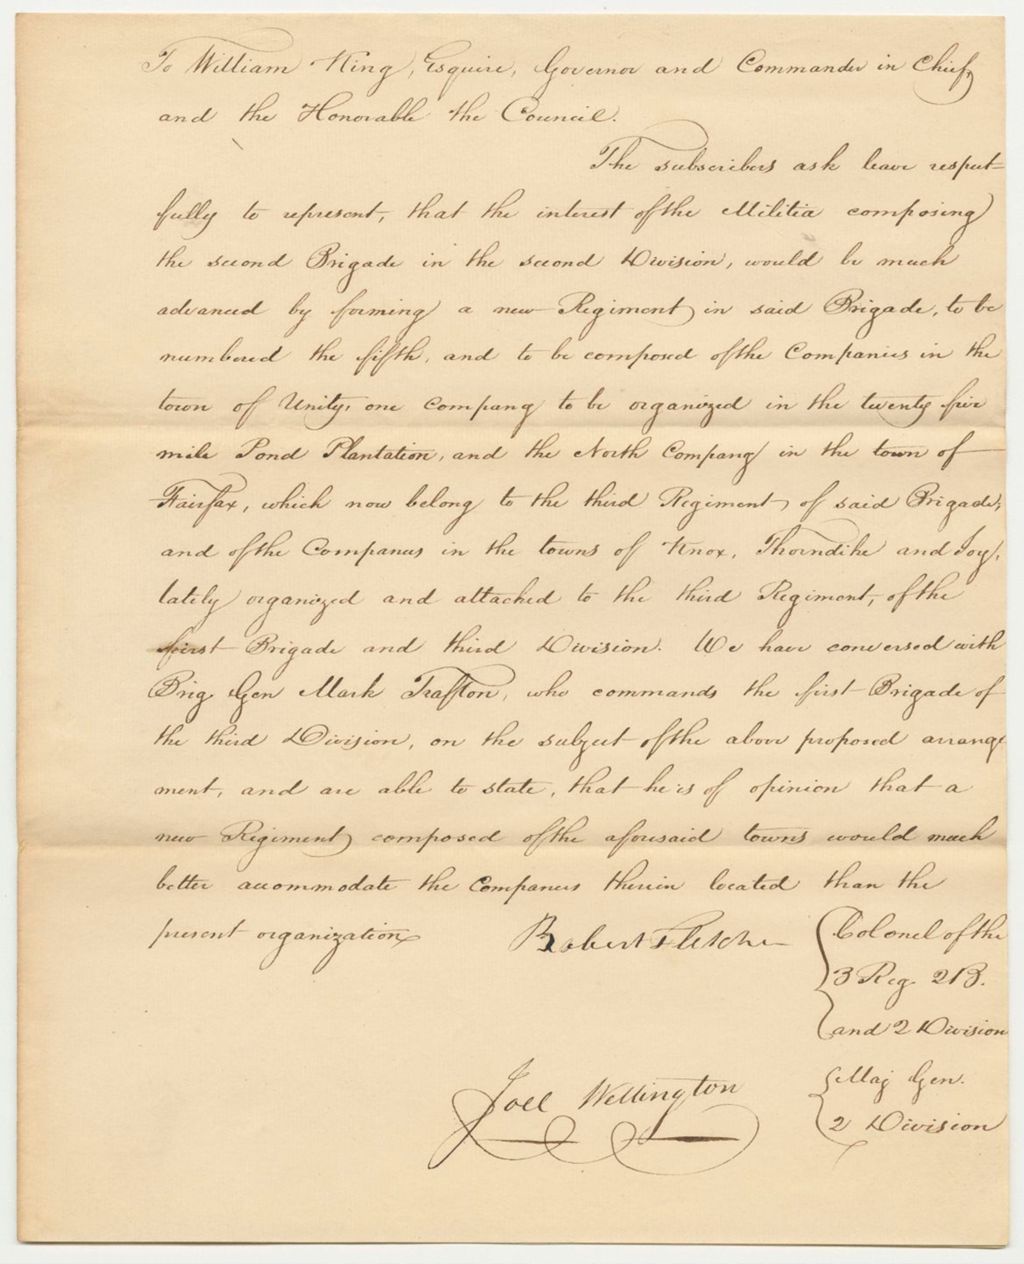 To William King, Esquire, Governor and Commander in Chief,
and the Honorable the Council.
The subscribers ask leave respect-
fully to represent, that the interest of the Militia composing
the second Brigade in the second Division, would be much
advanced by forming a new Regiment in said Brigade, to be
numbered the fifth, and to be composed of the Companies in the
town of Unity, one Company to be organized in the twenty five
mile Pond Plantation, and the North Company in the town of
Fairfax, which now belong to the third Regiment of said Brigade,
and of the Companies in the towns of Knox, Thorndike and Joy,
lately organized and attached to the third Regiment, of the
first Brigade and third Division. We have conversed with
Brig Gen Mark Trafton, who commands the first Brigade of
the third Division, on the subject of the above proposed arrange
ment, and are able to state, that he is of opinion that a
new Regiment composed of the aforesaid towns would much
better accommodate the Companies therein located than the
present organization
Robert Fletcher
Colonel of the
3 Reg. 2 B.
and 2 Division
Joel Wellington
Maj Gen.
2 Division